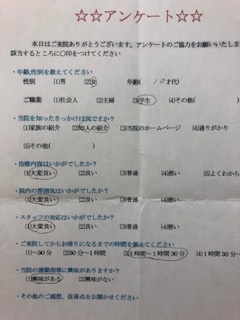 ☆☆アンケート☆☆
本日はご来院ありがとうございます。アンケートのご協力をお願いいたしま
該当するところに○印をつけてください
・年齢,性別を教えてください
性別 (1)男 (2)女 年齢( 10才代)
ご職業 (1)社会人 (2)主婦 (3)学生 (4)その他(
・当院を知ったきっかけは何ですか?
(1)家族の紹介 (2)知人の紹介 (3)当院のホームページ (4)通りがかり
(5)その他( )
・治療内容はいかがでしたか?
(1)大変良い (2)良い (3)普通 (4)悪い (5)よくわから
・院内の雰囲気はいかがでしたか?
(1)大変良い (2)良い (3)普通 (4)悪い
・スタッフの対応はいかがでしたか?
(1)大変良い (2)良い (3)普通 (4)悪い
・ご来院してからお帰りになるまでの時間を教えてください
(1)～30分 (2)30分～1時間 (3)1時間～1時間30分 (4)1時間30分～
・当院の運動指導に興味がありますか?
(1)興味がある (2)興味がない
・その他のご感想、改善点をお聞かせください